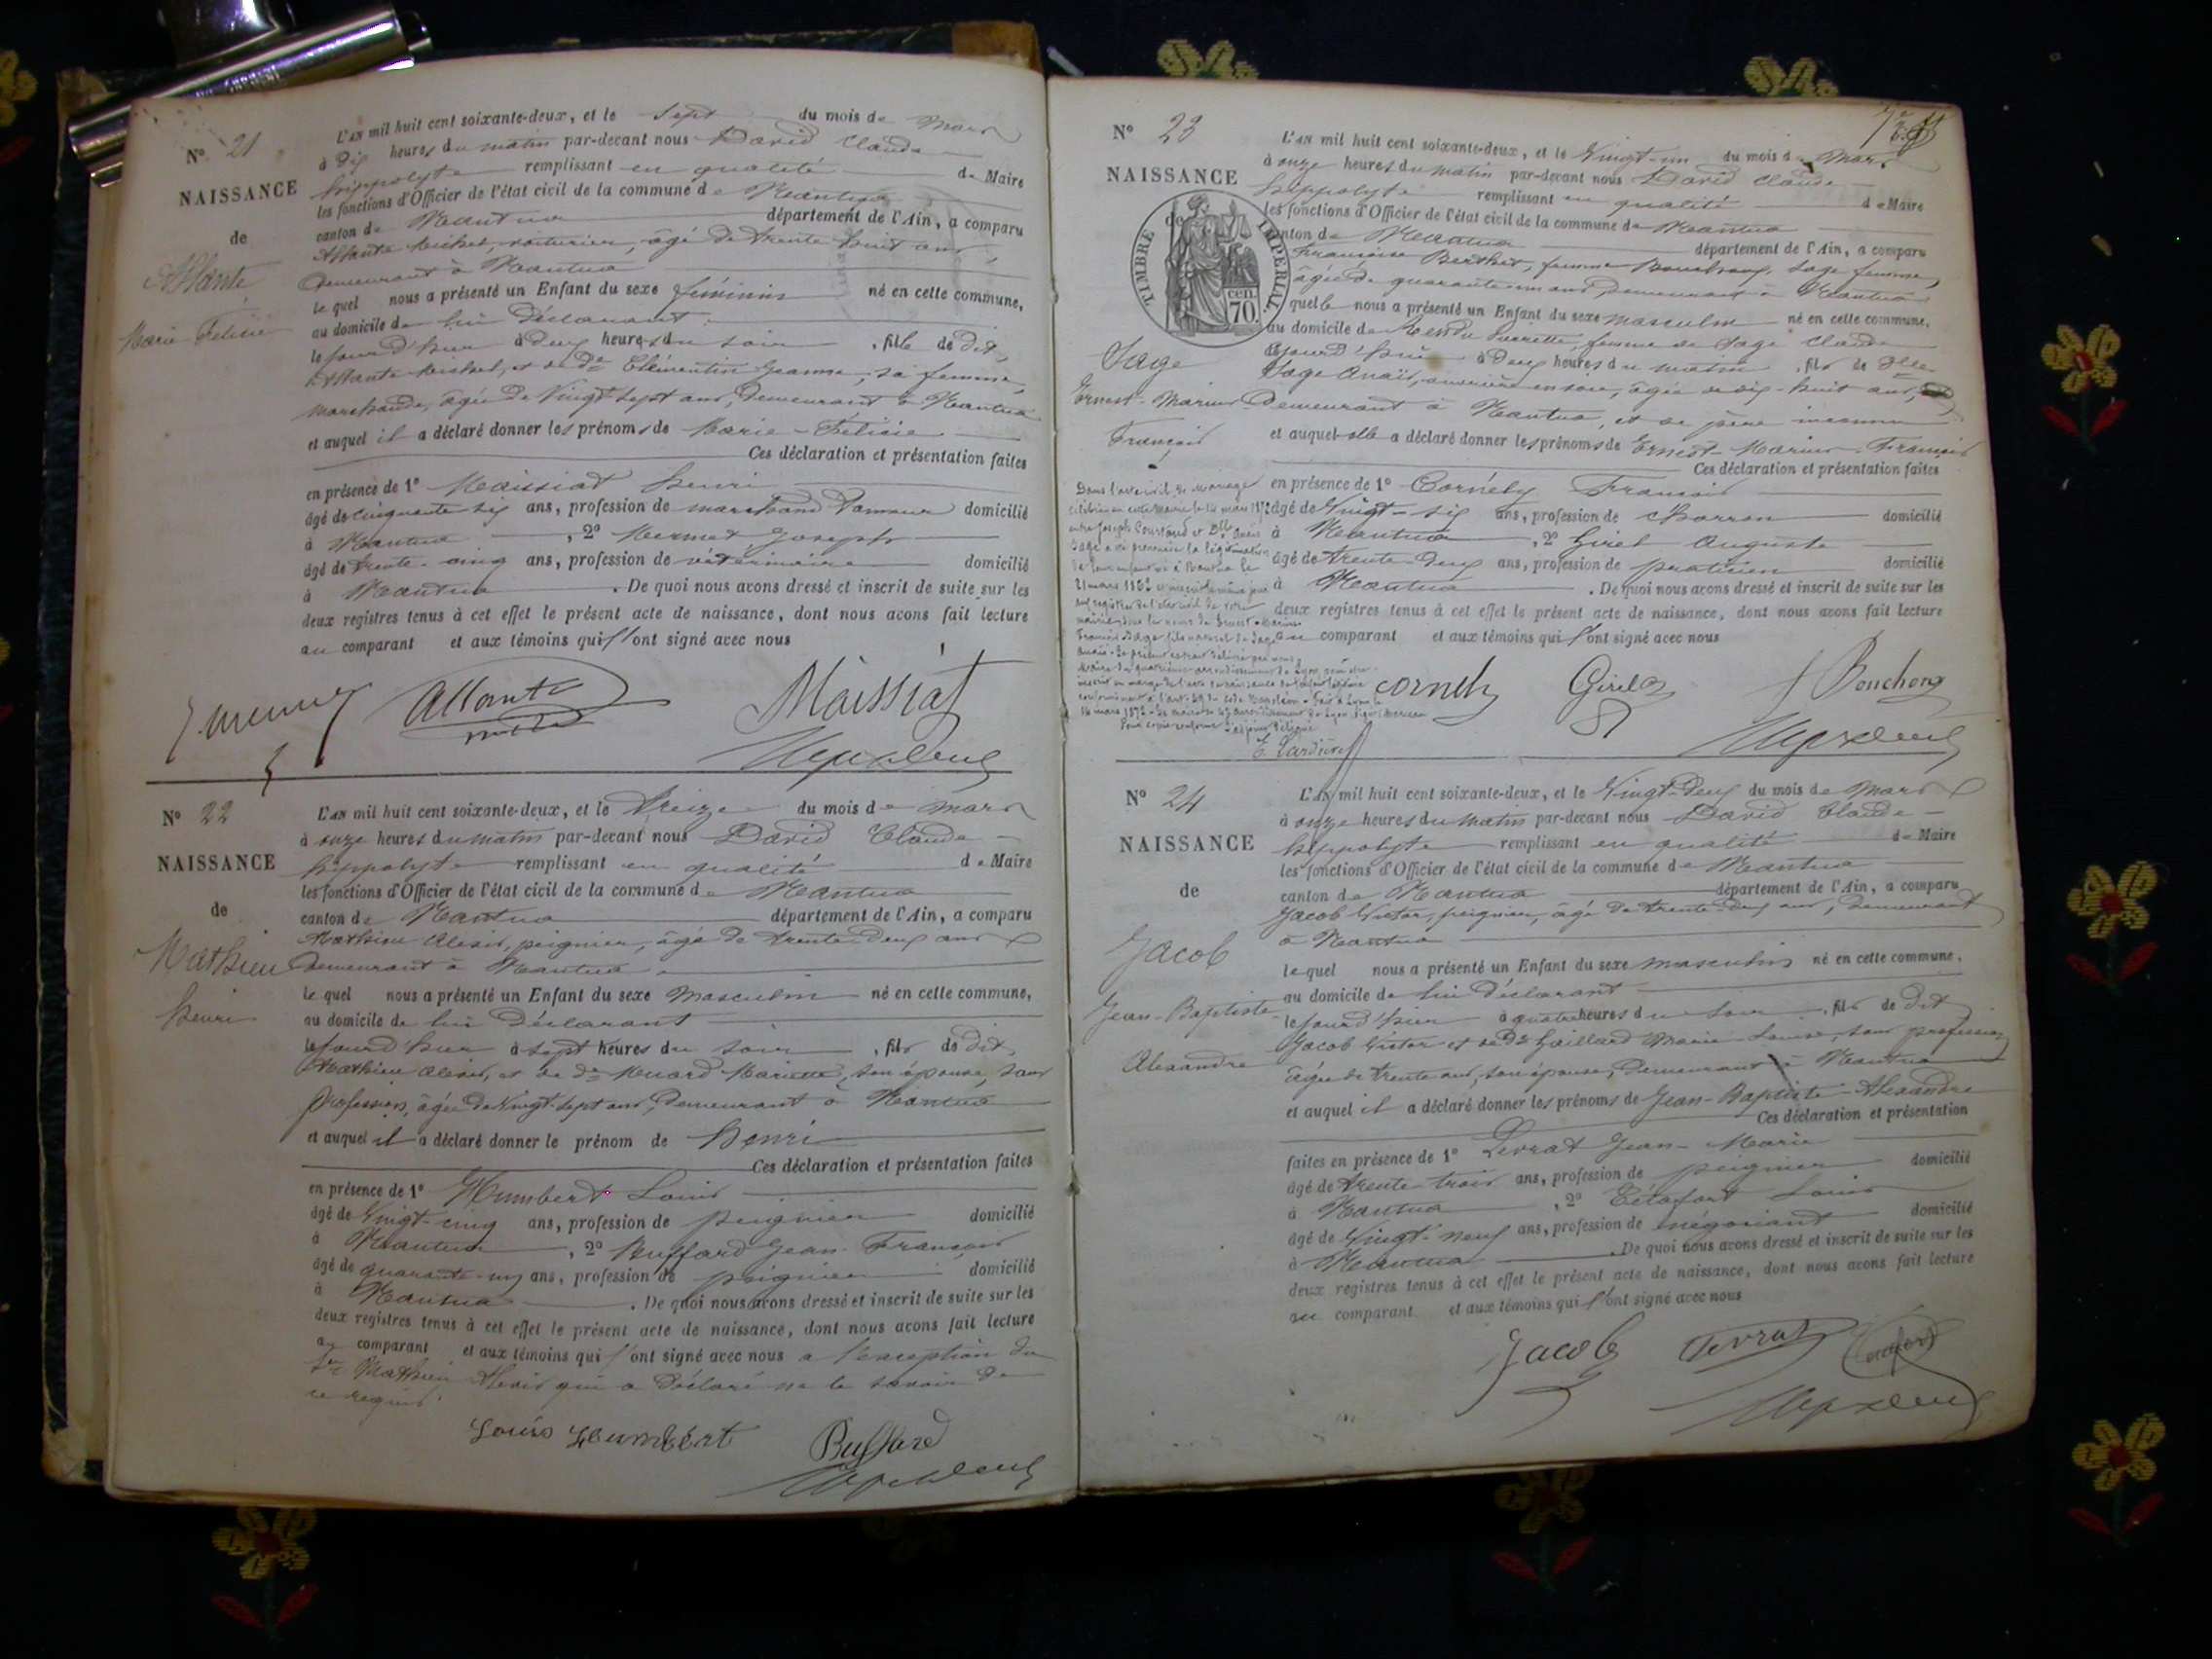 N° 21
NAISSANCE
de
Allante
Marie Félicie
L'AN mil huit cent soixante-deux, et le sept du mois de mars
à dix heures du matin par-devant nous David Claude
hippolyte remplissant en qualité de Maire
les fonctions d'Officier de l'état civil de la commune de Nantua
canton de Nantua département de l'Ain, a comparu
Allante Michel, voiturier, âgé de trente huit ans,
demeurant à Nantua
le quel nous a présenté un Enfant du sexe féminin né en cette commune,
au domicile de lui déclarant
le jour d'hier à deux heures du soir, fille de dit
Allante Michel, et de de Clémentin Jeanne, sa femme,
marchande, âgée de Vingt sept ans, demeurant à Nantua
et auquel il a déclaré donner les prénoms de Marie-Félicie
Ces déclaration et présentation faites
en présence de 1° Maissiat henri
âgé de cinquante six ans, profession de marchand Tanneur domicilié
à Nantua, 2° Mermet Joseph
âgé de trente-cinq ans, profession de vétérinaire domicilié
à Nantua. De quoi nous avons dressé et inscrit de suite sur les
deux registres tenus à cet effet le présent acte de naissance, dont nous avons fait lecture
au comparant et aux témoins qui l'ont signé avec nous
Allante
Maissiat
N° 22
NAISSANCE
de
Mathieu
henri
L'AN mil huit cent soixante-deux, et le treize du mois de mars
à onze heures du matin par-devant nous David Claude
hippolyte remplissant en qualité de Maire
les fonctions d'Officier de l'état civil de la commune de Nantua
canton de Nantua département de l'Ain, a comparu
Mathieu Alexis, peignier, âgé de trente-deux ans
demeurant à Nantua
le quel nous a présenté un Enfant du sexe masculin né en cette commune,
au domicile de lui déclarant
le jour d'hier à sept heures du soir, fils de dit
Mathieu Alexis, et de de Muard Mariette, son épouse, sans
profession, âgée de Vingt-sept ans, demeurant à Nantua
et auquel il a déclaré donner le prénom de henri
Ces déclaration et présentation faites
en présence de 1° Humbert Louis
âgé de Vingt-cinq ans, profession de peignier domicilié
à Nantua, 2° Buffard Jean-François
âgé de quarante-un ans, profession de peignier domicilié
à Nantua. De quoi nous avons dressé et inscrit de suite sur les
deux registres tenus à cet effet le présent acte de naissance, dont nous avons fait lecture
au comparant et aux témoins qui l'ont signé avec nous a l'exception du
Sr Mathieu Alexis qui a déclaré ne le savoir de
ce requis.
Louis Humbert
Buffard
N° 23
NAISSANCE
de
TIMBRE IMPERIAL
cen. 70
Sage
Ernest-Marius
François
L'AN mil huit cent soixante-deux, et le Vingt-un du mois de mars
à onze heures du matin par-devant nous David Claude
hippolyte remplissant en qualité de Maire
les fonctions d'Officier de l'état civil de la commune de Nantua
canton de Nantua département de l'Ain, a comparu
Françoise Berthet, femme Bouchong, sage femme,
âgée de quarante-un ans, demeurant à Nantua
quelle nous a présenté un Enfant du sexe masculin né en cette commune,
au domicile de Pierrette, femme de Sage Claude
jourd'hui à deux heures du matin, fils de Dlle
Sage Anaïs, ouvrière en soie, âgée de dix-huit ans,
demeurant à Nantua, et de père inconnu
et auquel elle a déclaré donner les prénoms de Ernest-Marius-François
Ces déclaration et présentation faites
en présence de 1° Cornély François
âgé de Vingt-six ans, profession de Charron domicilié
à Nantua, 2° Girel Auguste
âgé de trente-deux ans, profession de praticien domicilié
à Nantua. De quoi nous avons dressé et inscrit de suite sur les
deux registres tenus à cet effet le présent acte de naissance, dont nous avons fait lecture
au comparant et aux témoins qui l'ont signé avec nous
Dans l'acte civil de mariage
célébré en cette Mairie le 14 mars 1872
entre Joseph Courtand et Dlle Anaïs
Sage a été prononcée la légitimation
de leur enfant né à Nantua le
21 mars 1862 et inscrit le même jour
aux registres de l'état civil de cette
mairie, sous les noms de Ernest-Marius
François Sage fils naturel de Sage
Anaïs. Le présent extrait délivré par nous,
Maire du quatrième arrondissement de Lyon pour être
inscrit en marge de l'acte de naissance de l'enfant légitimé
conformément à l'art. 49 du code Napoléon - Fait à Lyon le
14 mars 1872
Pour copie conforme
cornely
Girel
Bouchong
N° 24
NAISSANCE
de
Jacob
Jean-Baptiste
Alexandre
L'AN mil huit cent soixante-deux, et le Vingt-deux du mois de mars
à onze heures du matin par-devant nous David Claude
hippolyte remplissant en qualité de Maire
les fonctions d'Officier de l'état civil de la commune de Nantua
canton de Nantua département de l'Ain, a comparu
Jacob Victor, peignier, âgé de trente-deux ans, demeurant
à Nantua
le quel nous a présenté un Enfant du sexe masculin né en cette commune,
au domicile de lui déclarant
le jour d'hier à quatre heures du soir, fils de dit
Jacob Victor et de de Gaillard Marie Louise, sans profession
âgée de trente ans, son épouse, demeurant à Nantua
et auquel il a déclaré donner les prénoms de Jean-Baptiste-Alexandre
Ces déclaration et présentation
faites en présence de 1° Levrat Jean-Marie
âgé de trente trois ans, profession de peignier domicilié
à Nantua, 2° Louis
âgé de Vingt-neuf ans, profession de négociant domicilié
à Nantua. De quoi nous avons dressé et inscrit de suite sur les
deux registres tenus à cet effet le présent acte de naissance, dont nous avons fait lecture
au comparant et aux témoins qui l'ont signé avec nous
Jacob
Levrat